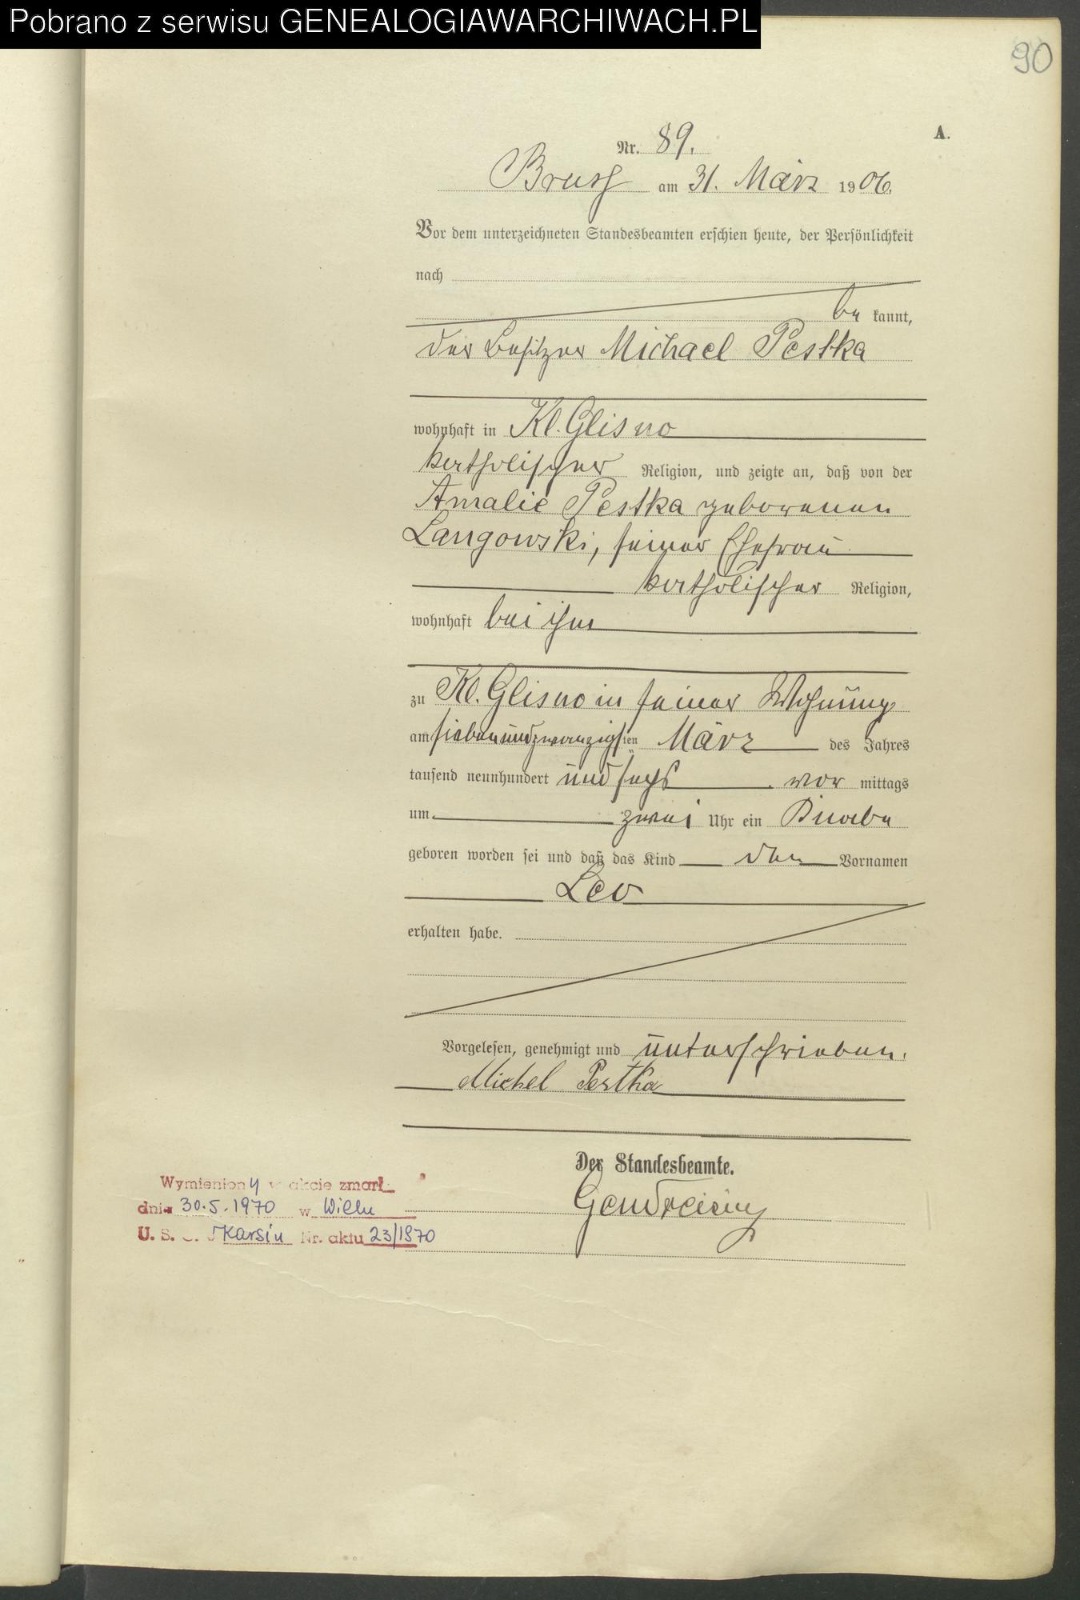 Pobrano z serwisu GENEALOGIAWARCHIWACH.PL
90
A.
Nr. 89.
Bruss am 31. März 1906.
Vor dem unterzeichneten Standesbeamten erschien heute, der Persönlichkeit
nach
be kannt,
der Besitzer Michael Pestka
wohnhaft in Kl. Glisno
katholischer Religion, und zeigte an, daß von der
Amalie Pestka geborenen
Langowski, seiner Ehefrau
katholischer Religion,
wohnhaft bei ihm
zu Kl. Glisno in seiner Wohnung
am siebenundzwanzigsten März des Jahres
tausend neunhundert und sechs vor mittags
um zwei Uhr ein Knabe
geboren worden sei und daß das Kind den Vornamen
Leo
erhalten habe.
Vorgelesen, genehmigt und unterschrieben.
Michel Pestka
Der Standesbeamte.
Wymieniony w akcie zmarł
dnia 30.5.1970 w Wielu
U. S. C. Karsin Nr. aktu 23/1970